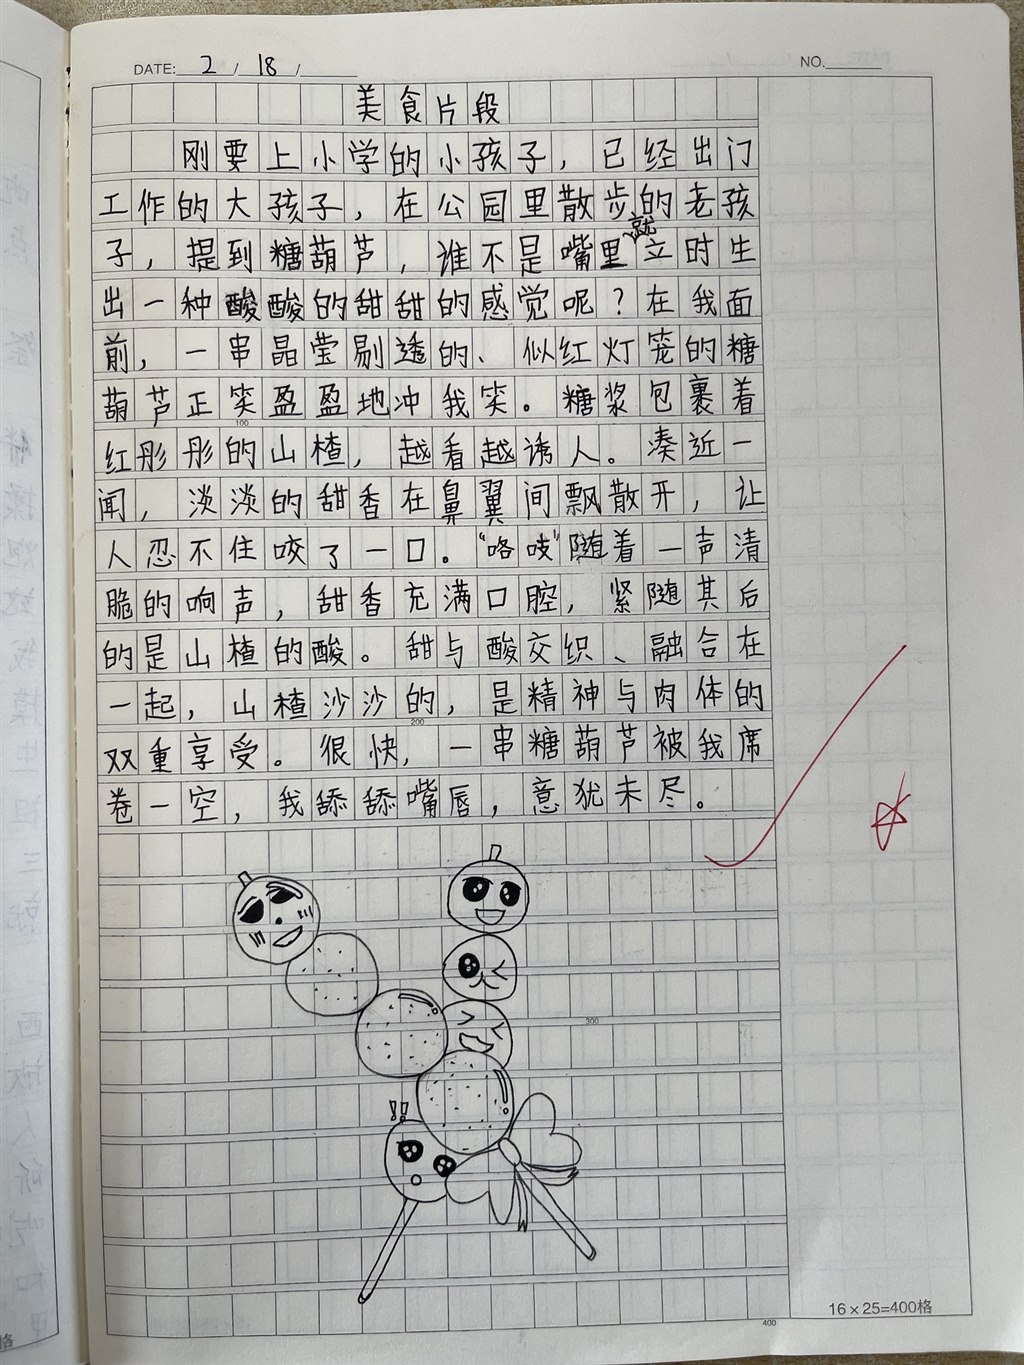 DATE: 2 / 18 /
NO.
美食片段
刚要上小学的小孩子，已经出门
工作的大孩子，在公园里散步的老孩
子，提到糖葫芦，谁不是嘴里就立时生
出一种酸酸的甜甜的感觉呢？在我面
前，一串晶莹剔透的、似红灯笼的糖
葫芦正笑盈盈地冲我笑。糖浆包裹着
100
红彤彤的山楂，越看越诱人。凑近一
闻，淡淡的甜香在鼻翼间飘散开，让
人忍不住咬了一口。“咯吱”随着一声清
脆的响声，甜香充满口腔，紧随其后
的是山楂的酸。甜与酸交织、融合在
一起，山楂沙沙的，是精神与肉体的
200
双重享受。很快，一串糖葫芦被我席
卷一空，我舔舔嘴唇，意犹未尽。
300
!!
16×25=400格
400